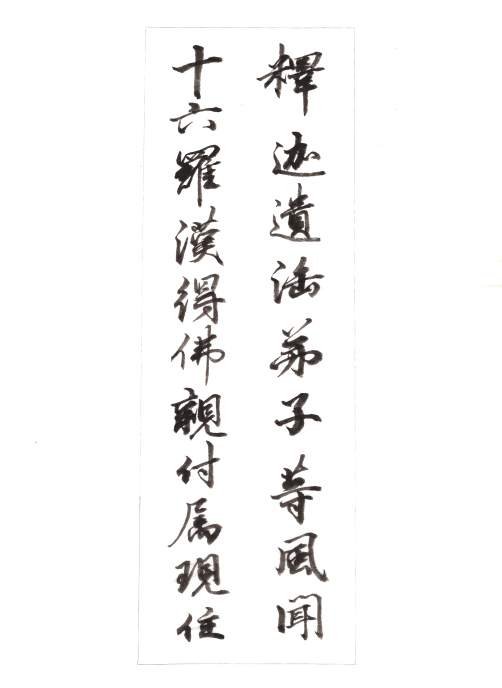 釋迦遺法弟子等風聞
十六羅漢得佛親付属現住